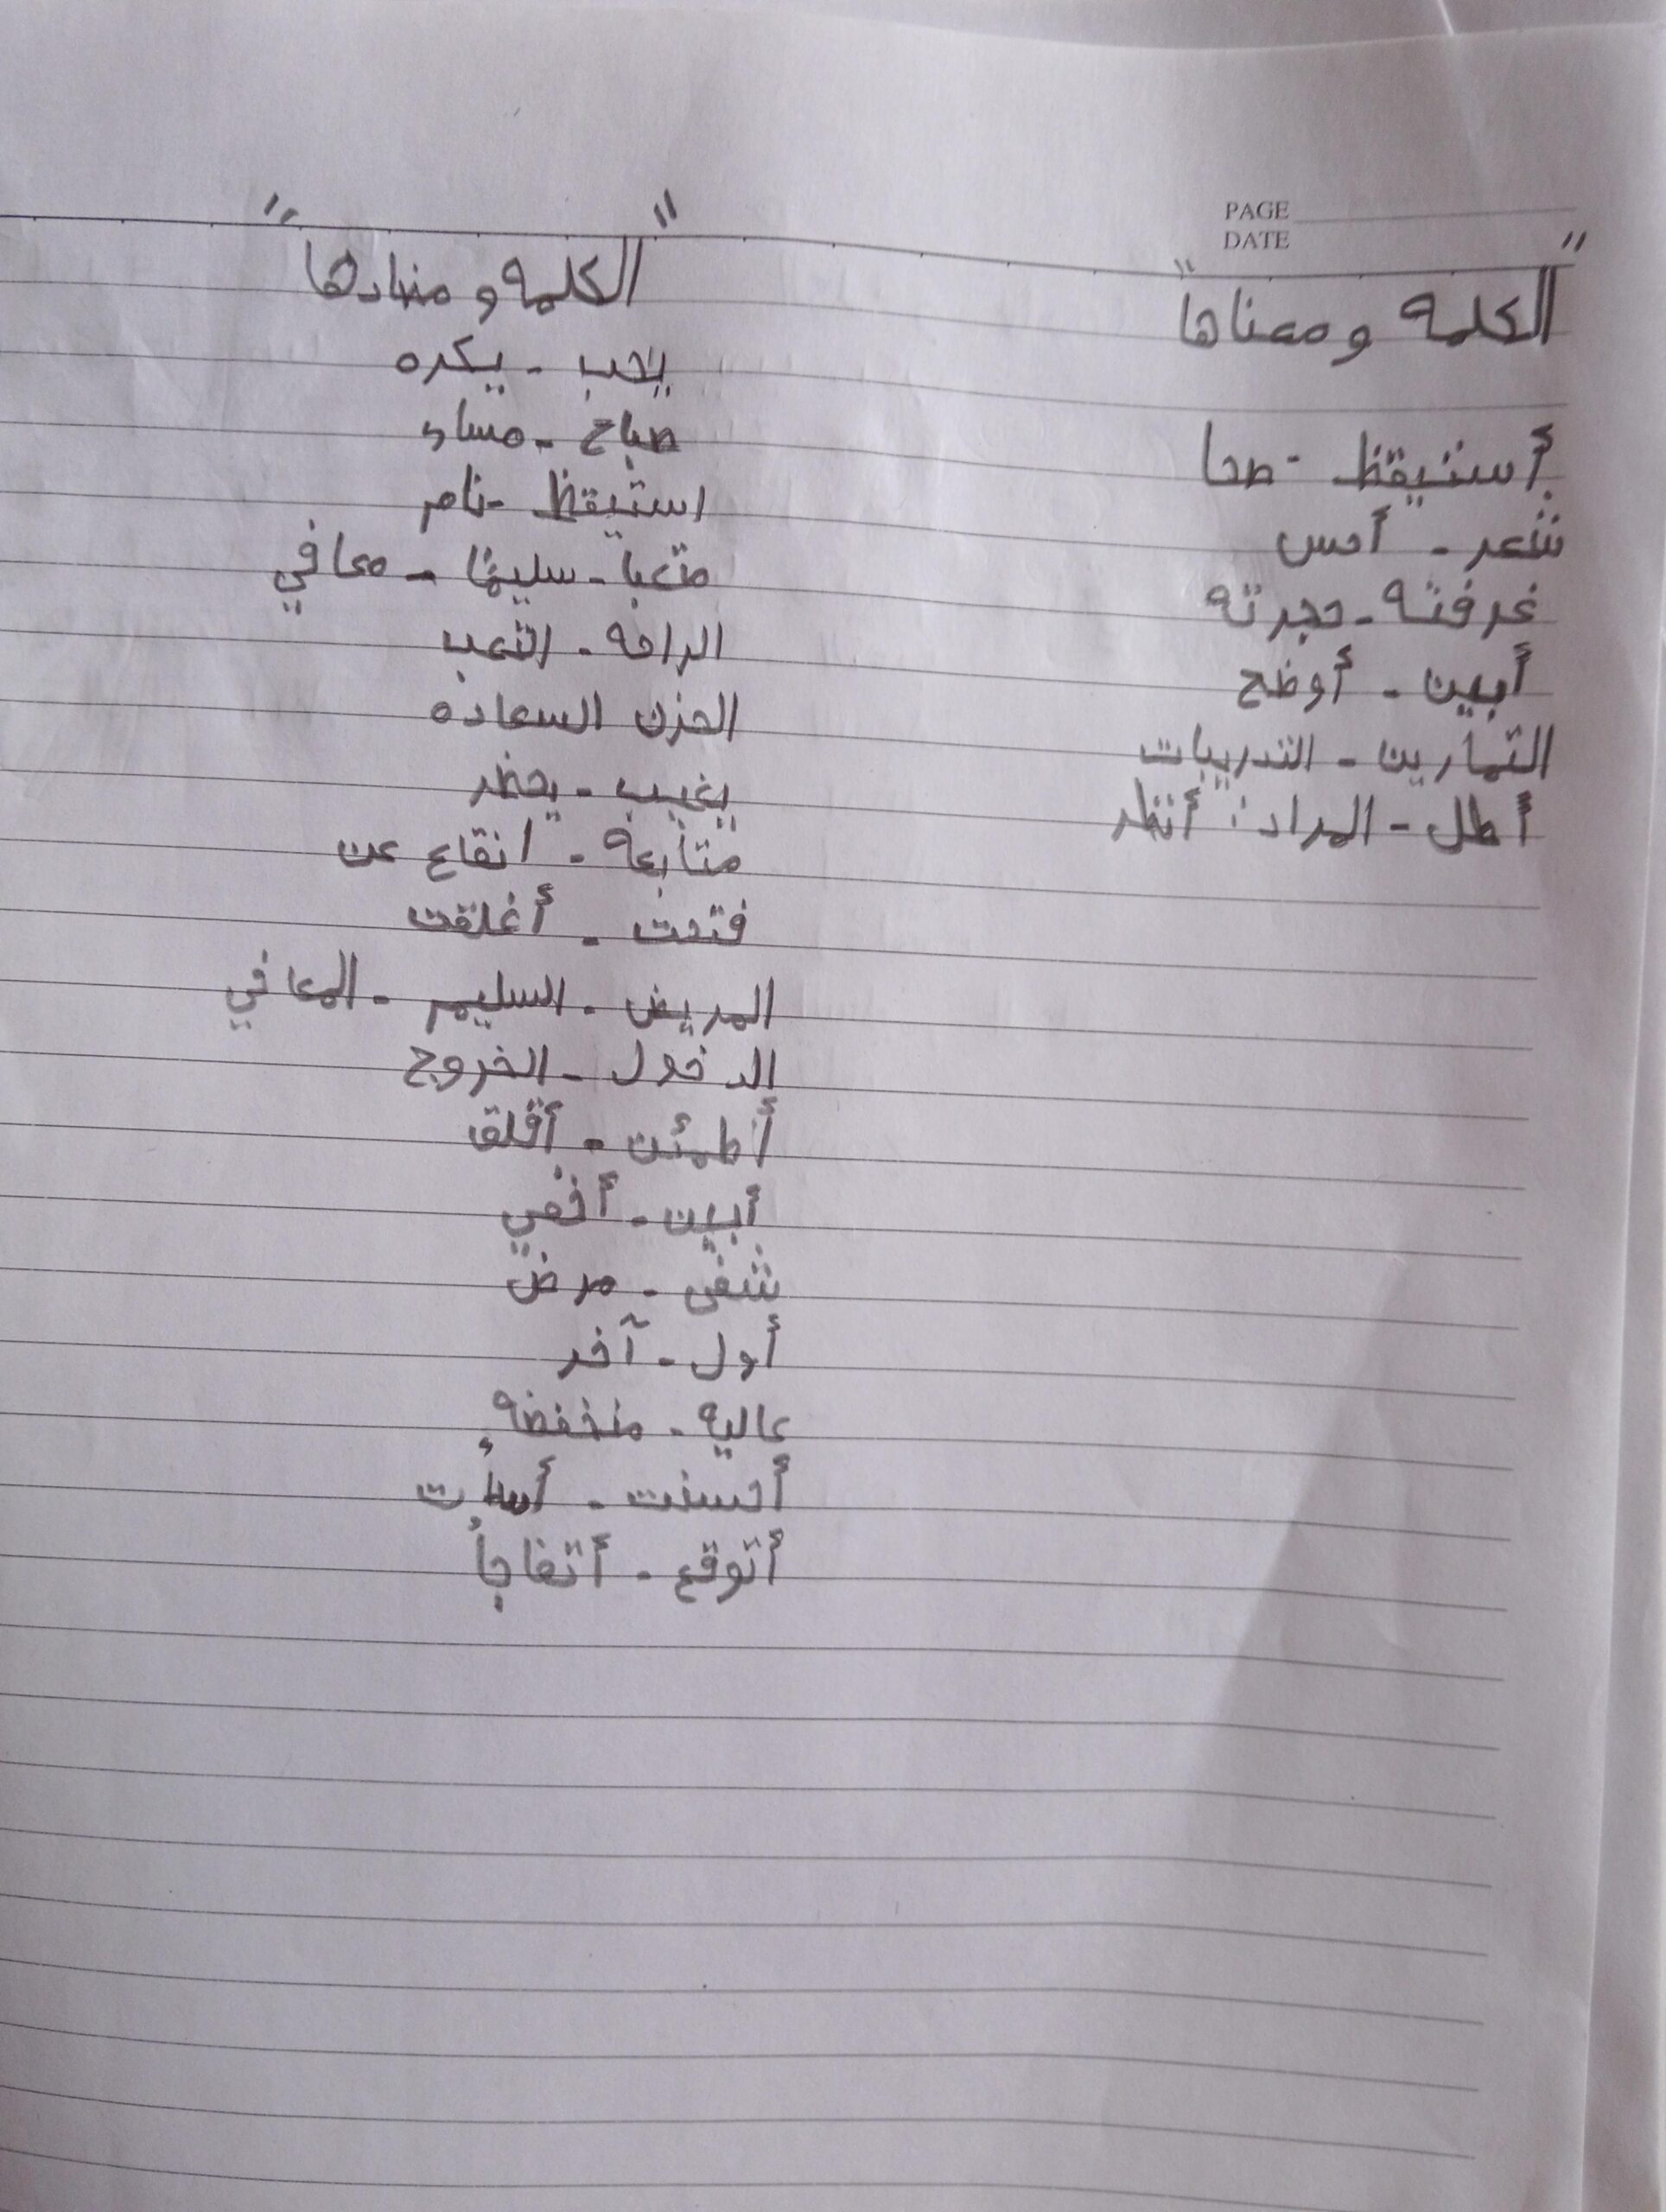 PAGE
DATE
"الكلمه ومعناها"
أستيقظ - صحا
شعر - أحس
غرفته - حجرته
أبين - أوضح
التمارين - التدريبات
أطل - المراد: أنظر
"الكلمه ومضادها"
يحب - يكره
صباح - مساء
استيقظ - نام
متعبا - سليمًا - معافي
الراحه - التعب
الحزن السعاده
يغيب - يحضر
متابعه - انقاع عن
فتحت - أغلقت
المريض - السليم - المعافي
الدخول - الخروج
أطمئن - أقلق
أبين - أخفي
شفى - مرض
أول - آخر
عاليه - منخفضه
أحسنت - أسأت
أتوقع - أتفاجأ